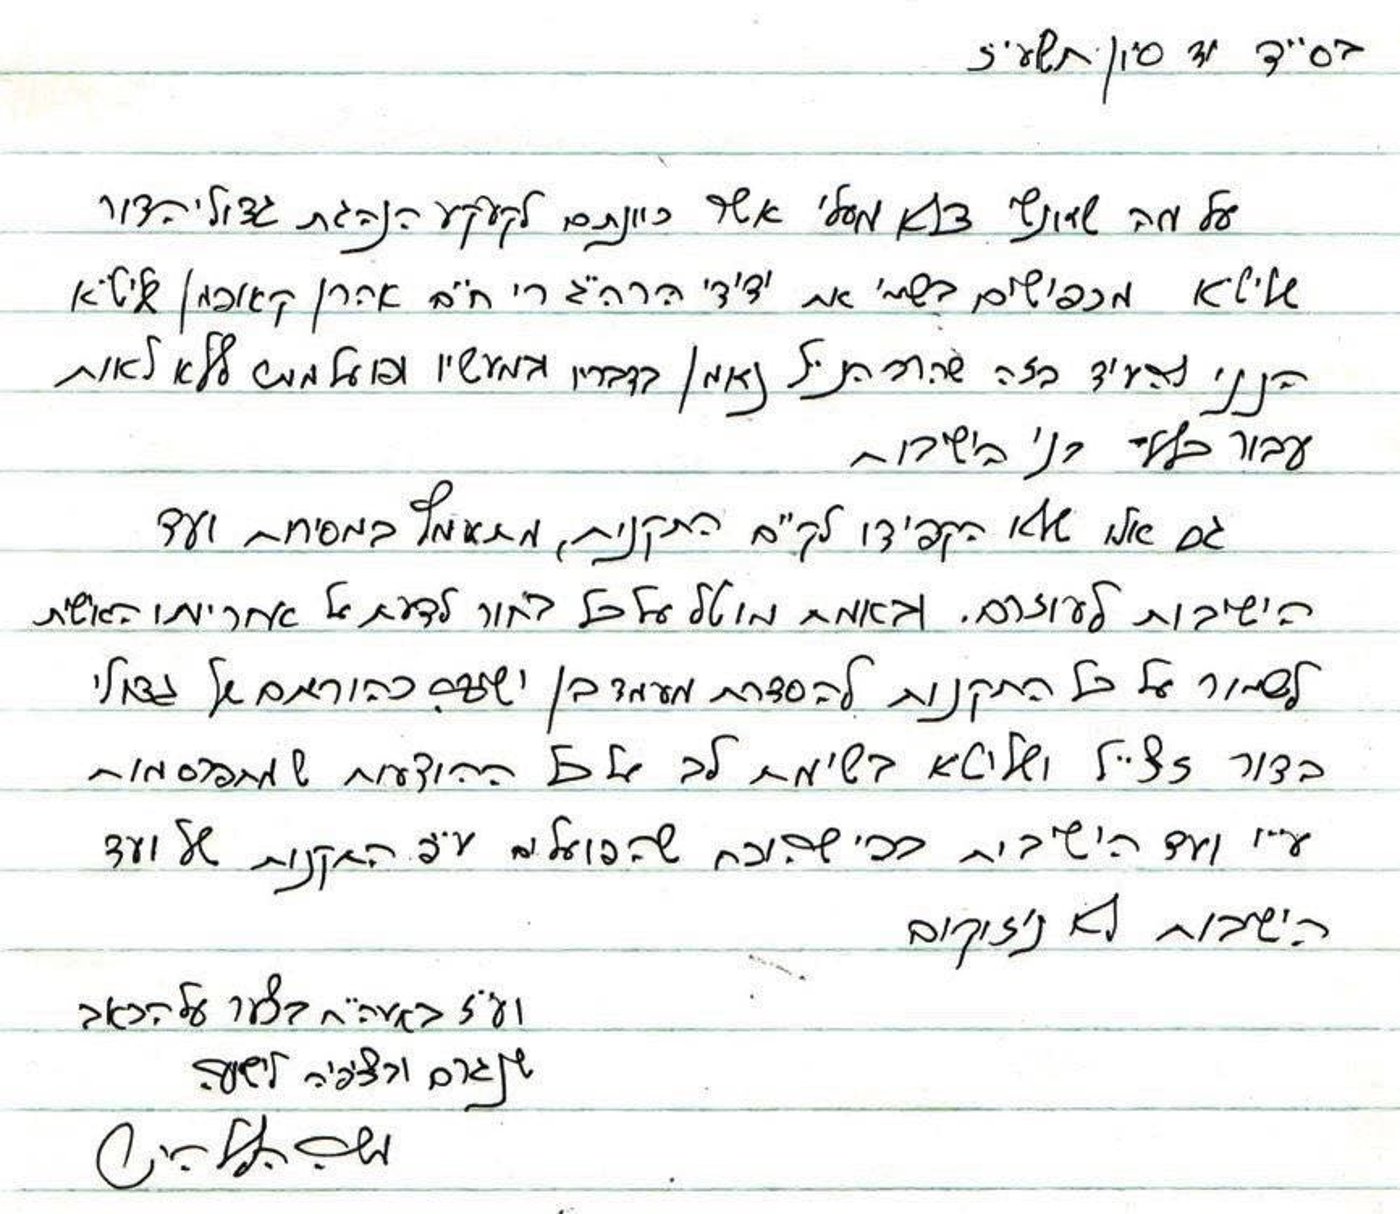 בס"ד יד סיון תשע"ז
על מה שאנשי דלא מעלי אשר כיוונתם לקעקע הנהגת גדולי הדור
שליט"א מכפישים בשמי את ידידי הרה"ג רי חיים אהרן קאופמן שליט"א
הנני להעיד בזה שהרב הנ"ל נאמן בדבריו ובמעשיו ופועל ממש ללא לאות
עבור כלל בני הישיבות
גם אלו שלא הקפידו לקיים התקנות, מתאמץ במסירות ועד
הישיבות לעוזרם. ובאמת מוטל על כל בחור לדעת על אחריותו האישית
לשמור על כל התקנות להסדרת מעמד בן ישיבה כהוראתם של גדולי
הדור זצ"ל ושליט"א בשימת לב על כל ההודעות שמתפרסמות
ע"י ועד הישיבות כפי שהוכח שהפועלים ע"פ התקנות של ועד
הישיבות לא ניזוקים
וע"ז באעה"ח בצער על הכאב
שנגרם ובציפיה לישועה
משה הלל הירש